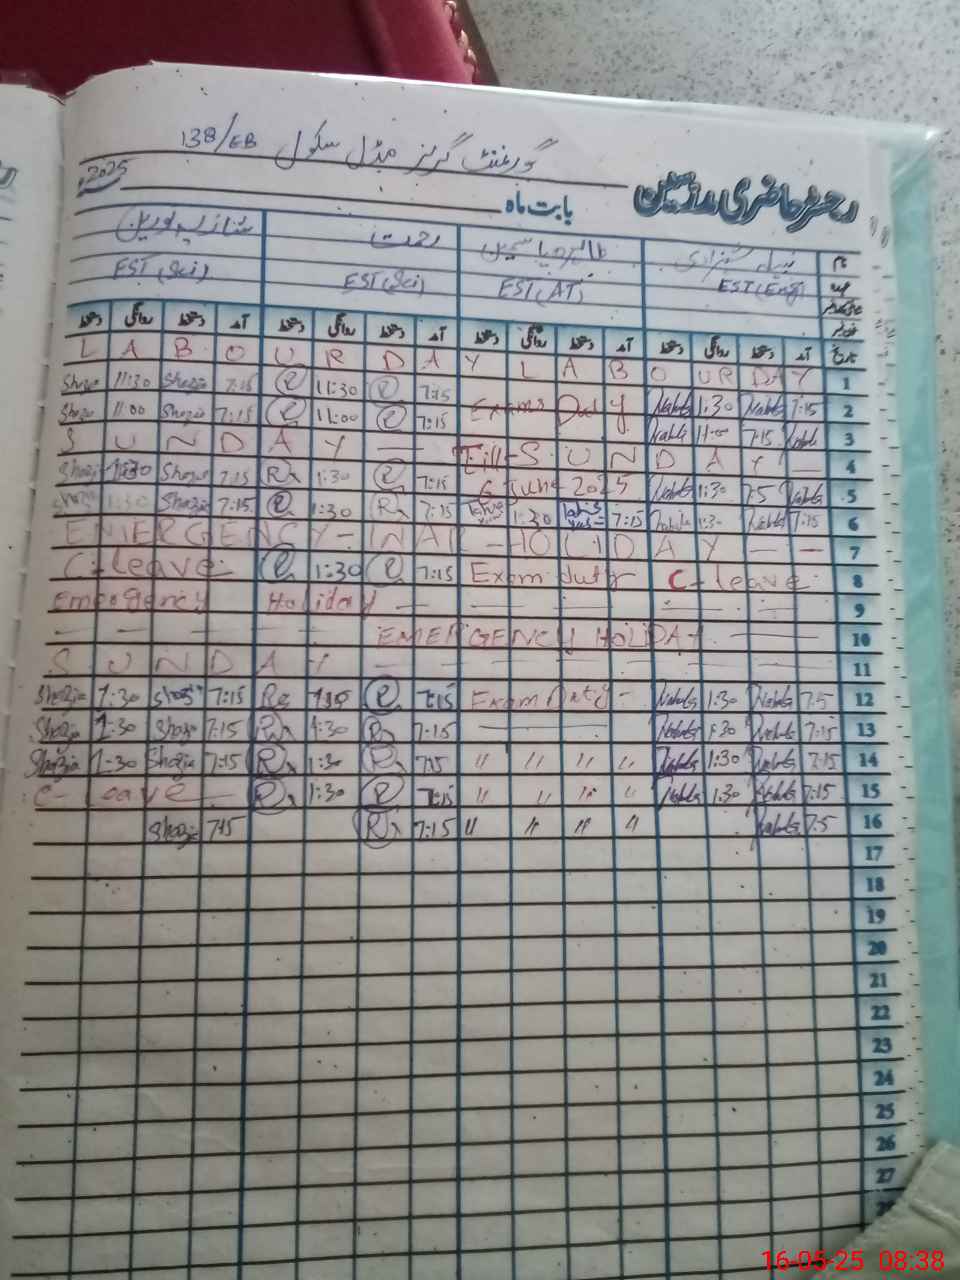 گورنمنٹ گرلز مڈل سکول 138/EB
رجسٹر حاضری مدرسین
بابت ماہ
2025
نام نبیلہ شہزادی طاہرہ یاسمین رحمت شازیہ نورین
عہدہ EST(Eng) EST(AT) EST(Sci) EST(Sci)
تاریخ آمد دستخط روانگی دستخط آمد دستخط روانگی دستخط آمد دستخط روانگی دستخط آمد دستخط روانگی دستخط
L A B O U R D A Y L A B O U R D A Y 1
Shazia 11:30 Shazia 7:15 R 11:30 R 7:15 Exams Duty Nabila 1:30 Nabila 7:15 2
Shazia 11:00 Shazia 7:15 R 11:00 R 7:15 Nabila 11:00 7:15 Nabila 3
S U N D A Y — Till - S U N D A Y — 4
Shazia 1:30 Shazia 7:15 R 1:30 R 7:15 6 June 2025 Nabila 1:30 7:5 Nabila 5
1:30 Shazia 7:15 R 1:30 R 7:15 1:30 7:15 Nabila 1:30 Nabila 7:15 6
EMERGENCY - HOLIDAY — — 7
C-leave R 1:30 R 7:15 Exam duty C-leave 8
Emergency Holiday — 9
EMERGENCY HOLIDAY 10
S U N D A Y — 11
Shazia 1:30 Shazia 7:15 R 1:30 R 7:15 Exam Duty - Nabila 1:30 Nabila 7:5 12
Shazia 1:30 Shazia 7:15 R 1:30 R 7:15 Nabila 1:30 Nabila 7:15 13
Shazia 1:30 Shazia 7:15 R 1:30 R 7:15 " " " " Nabila 1:30 Nabila 7:15 14
C-leave - R 1:30 R 7:15 " " " " Nabila 1:30 Nabila 7:15 15
Shazia 7:15 R 7:15 " " " " Nabila 7:5 16
17
18
19
20
21
22
23
24
25
26
27
28
16-05-25 08:38